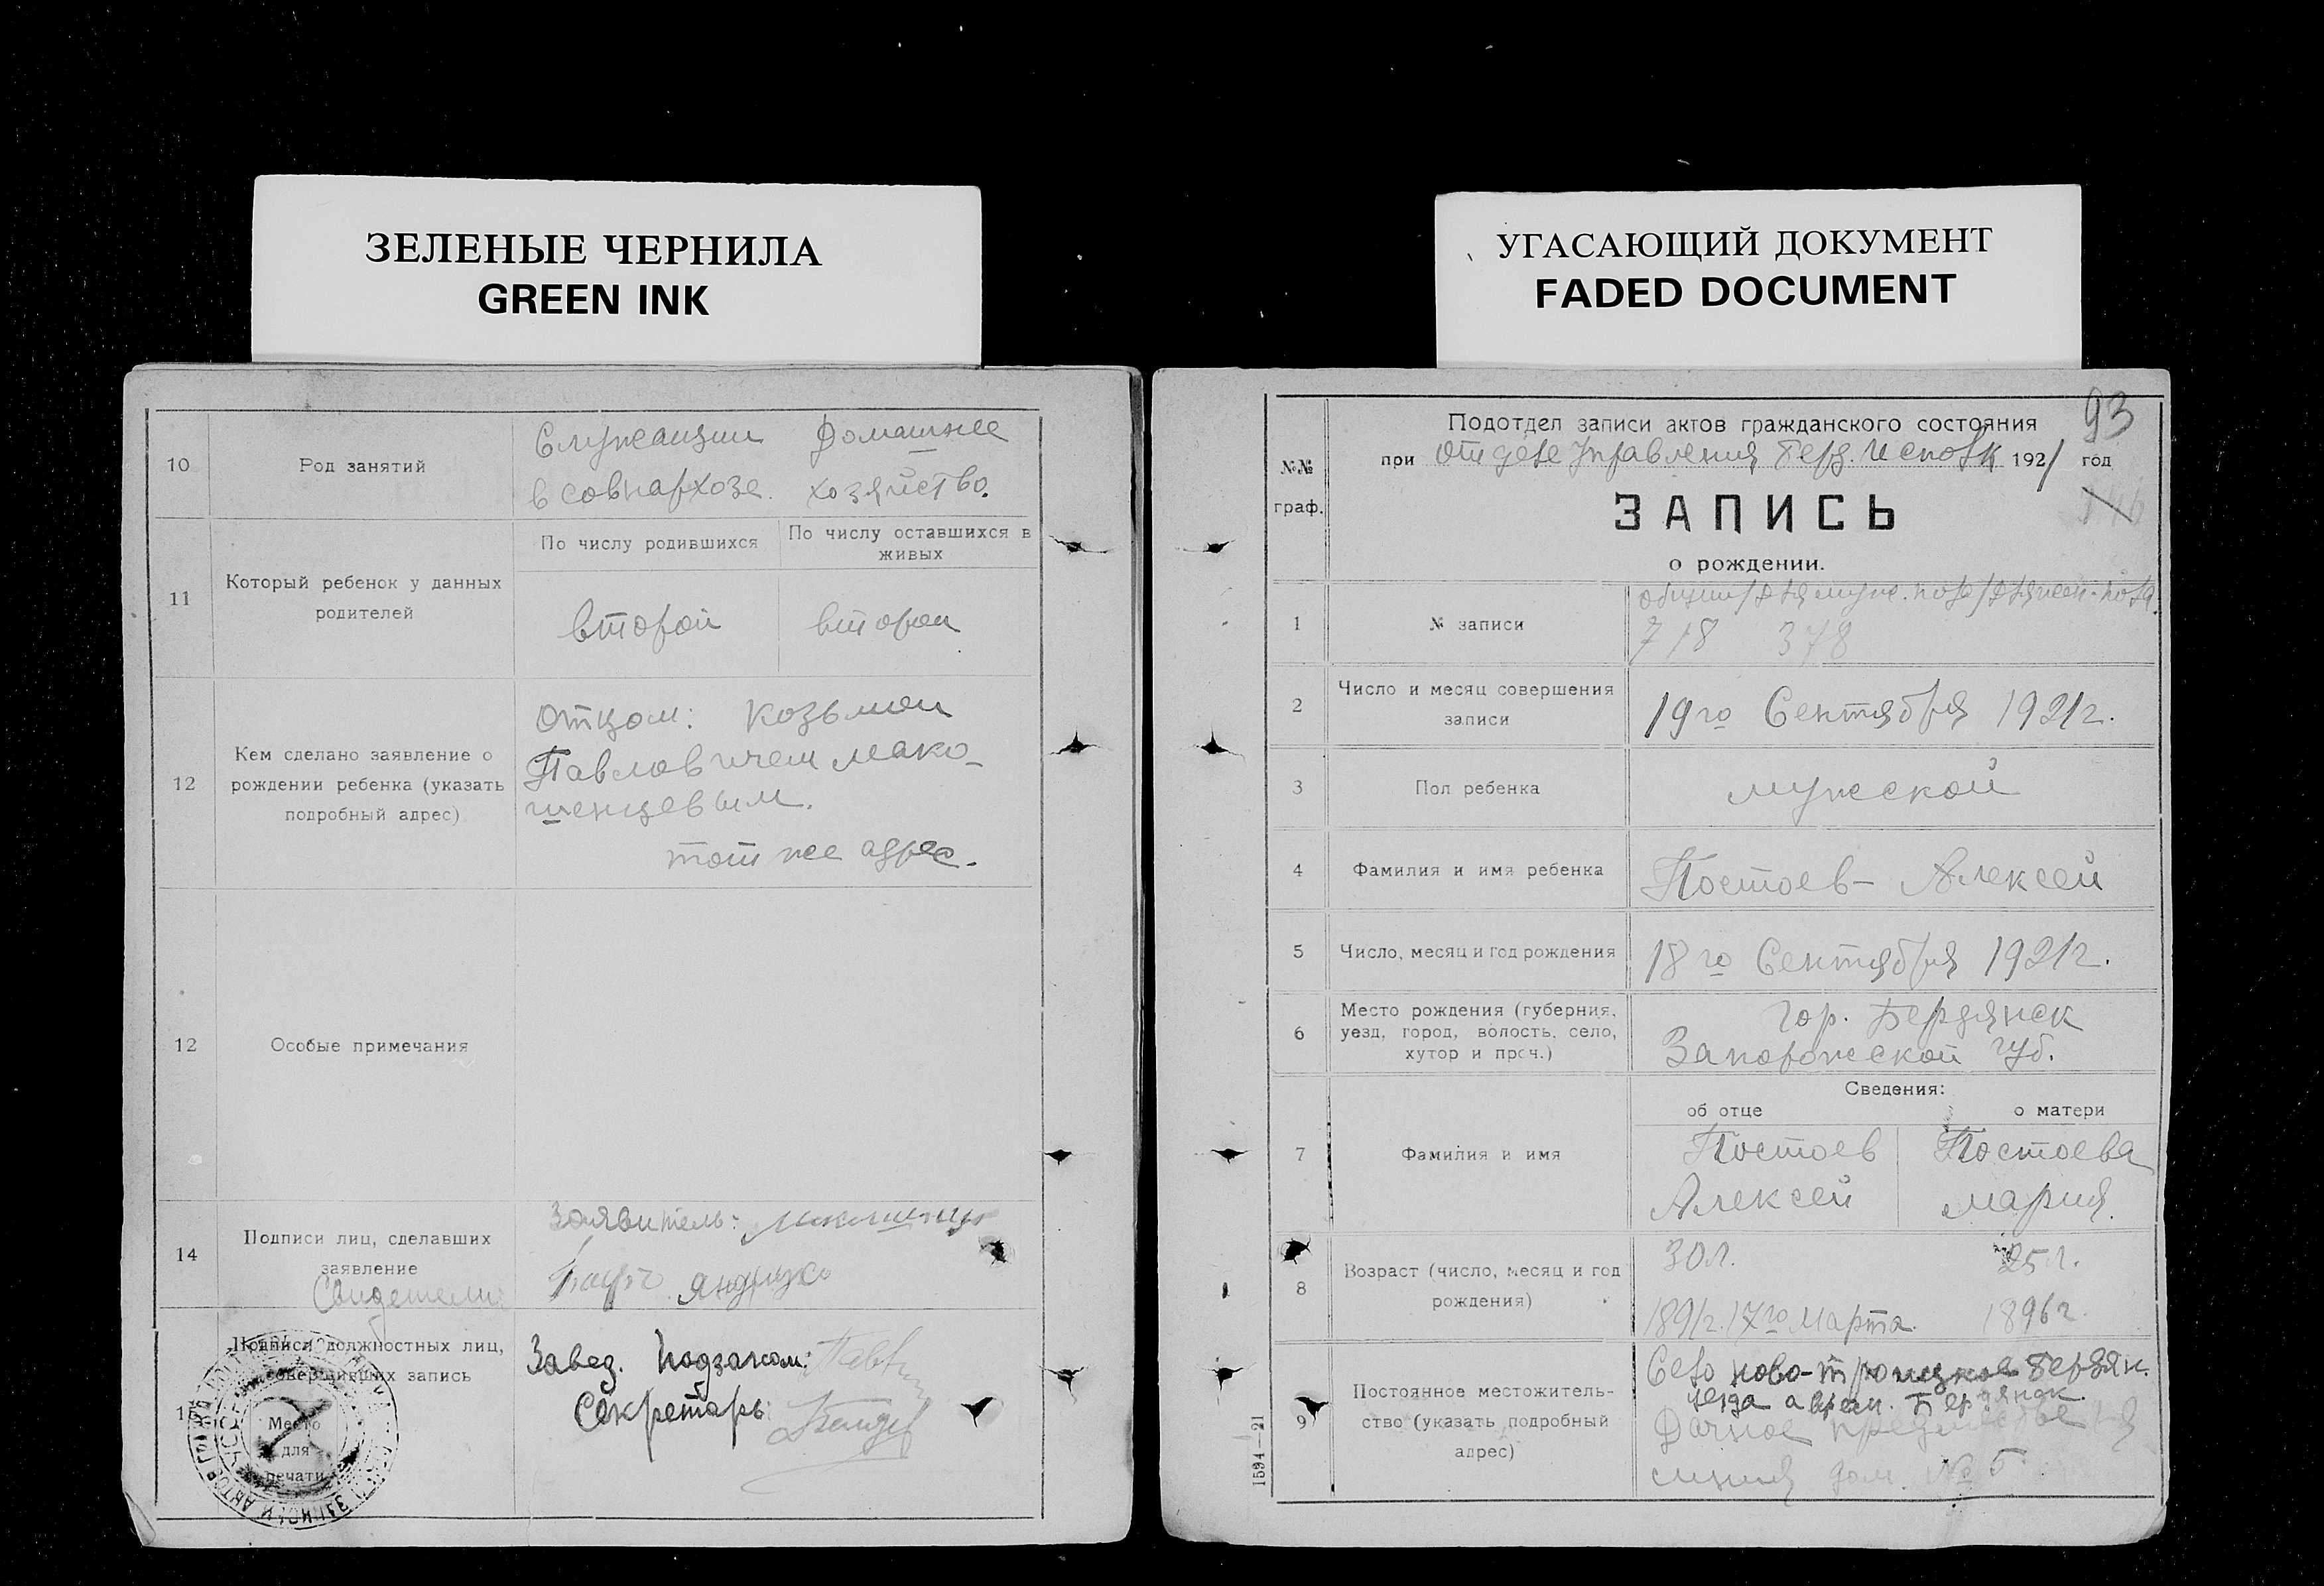 ЗЕЛЕНЫЕ ЧЕРНИЛА
GREEN INK
10
Род занятий
Служащий Домашнее
в совнархозе. хозяйство.
11
Который ребенок у данных
родителей
По числу родившихся
По числу оставшихся в
живых
второй
второй
12
Кем сделано заявление о
рождении ребенка (указать
подробный адрес)
Отцом: Козьмой
Павловичем Мако-
шенцевым.
тот же адрес.
12
Особые примечания
14
Подписи лиц, сделавших
заявление
Свидетели:
Заявитель:
15
Подписи должностных лиц,
совершивших запись
Место
для
печати
Завед. Подзагом:
Секретарь:
УГАСАЮЩИЙ ДОКУМЕНТ
FADED DOCUMENT
93
№№
граф.
Подотдел записи актов гражданского состояния
при отделе Управления Берд. Исполк 1921 год
146
ЗАПИСЬ
о рождении.
1
№ записи
общий/для муж. пола/для жен. пола.
718 378
2
Число и месяц совершения
записи
19го Сентября 1921г.
3
Пол ребенка
мужской
4
Фамилия и имя ребенка
Постоев - Алексей
5
Число, месяц и год рождения
18го Сентября 1921г.
6
Место рождения (губерния,
уезд, город, волость, село,
хутор и проч.)
гор. Бердянск
Запорожской губ.
Сведения:
об отце
о матери
7
Фамилия и имя
Постоев
Алексей
Постоева
Мария.
8
Возраст (число, месяц и год
рождения)
30л.
25л.
1891г. 17го Марта.
1896г.
9
Постоянное местожитель-
ство (указать подробный
адрес)
Село Ново-Троицкое Бердян.
уезда а врем. Бердянск
Дачное
линия дом. № 5
1594—21